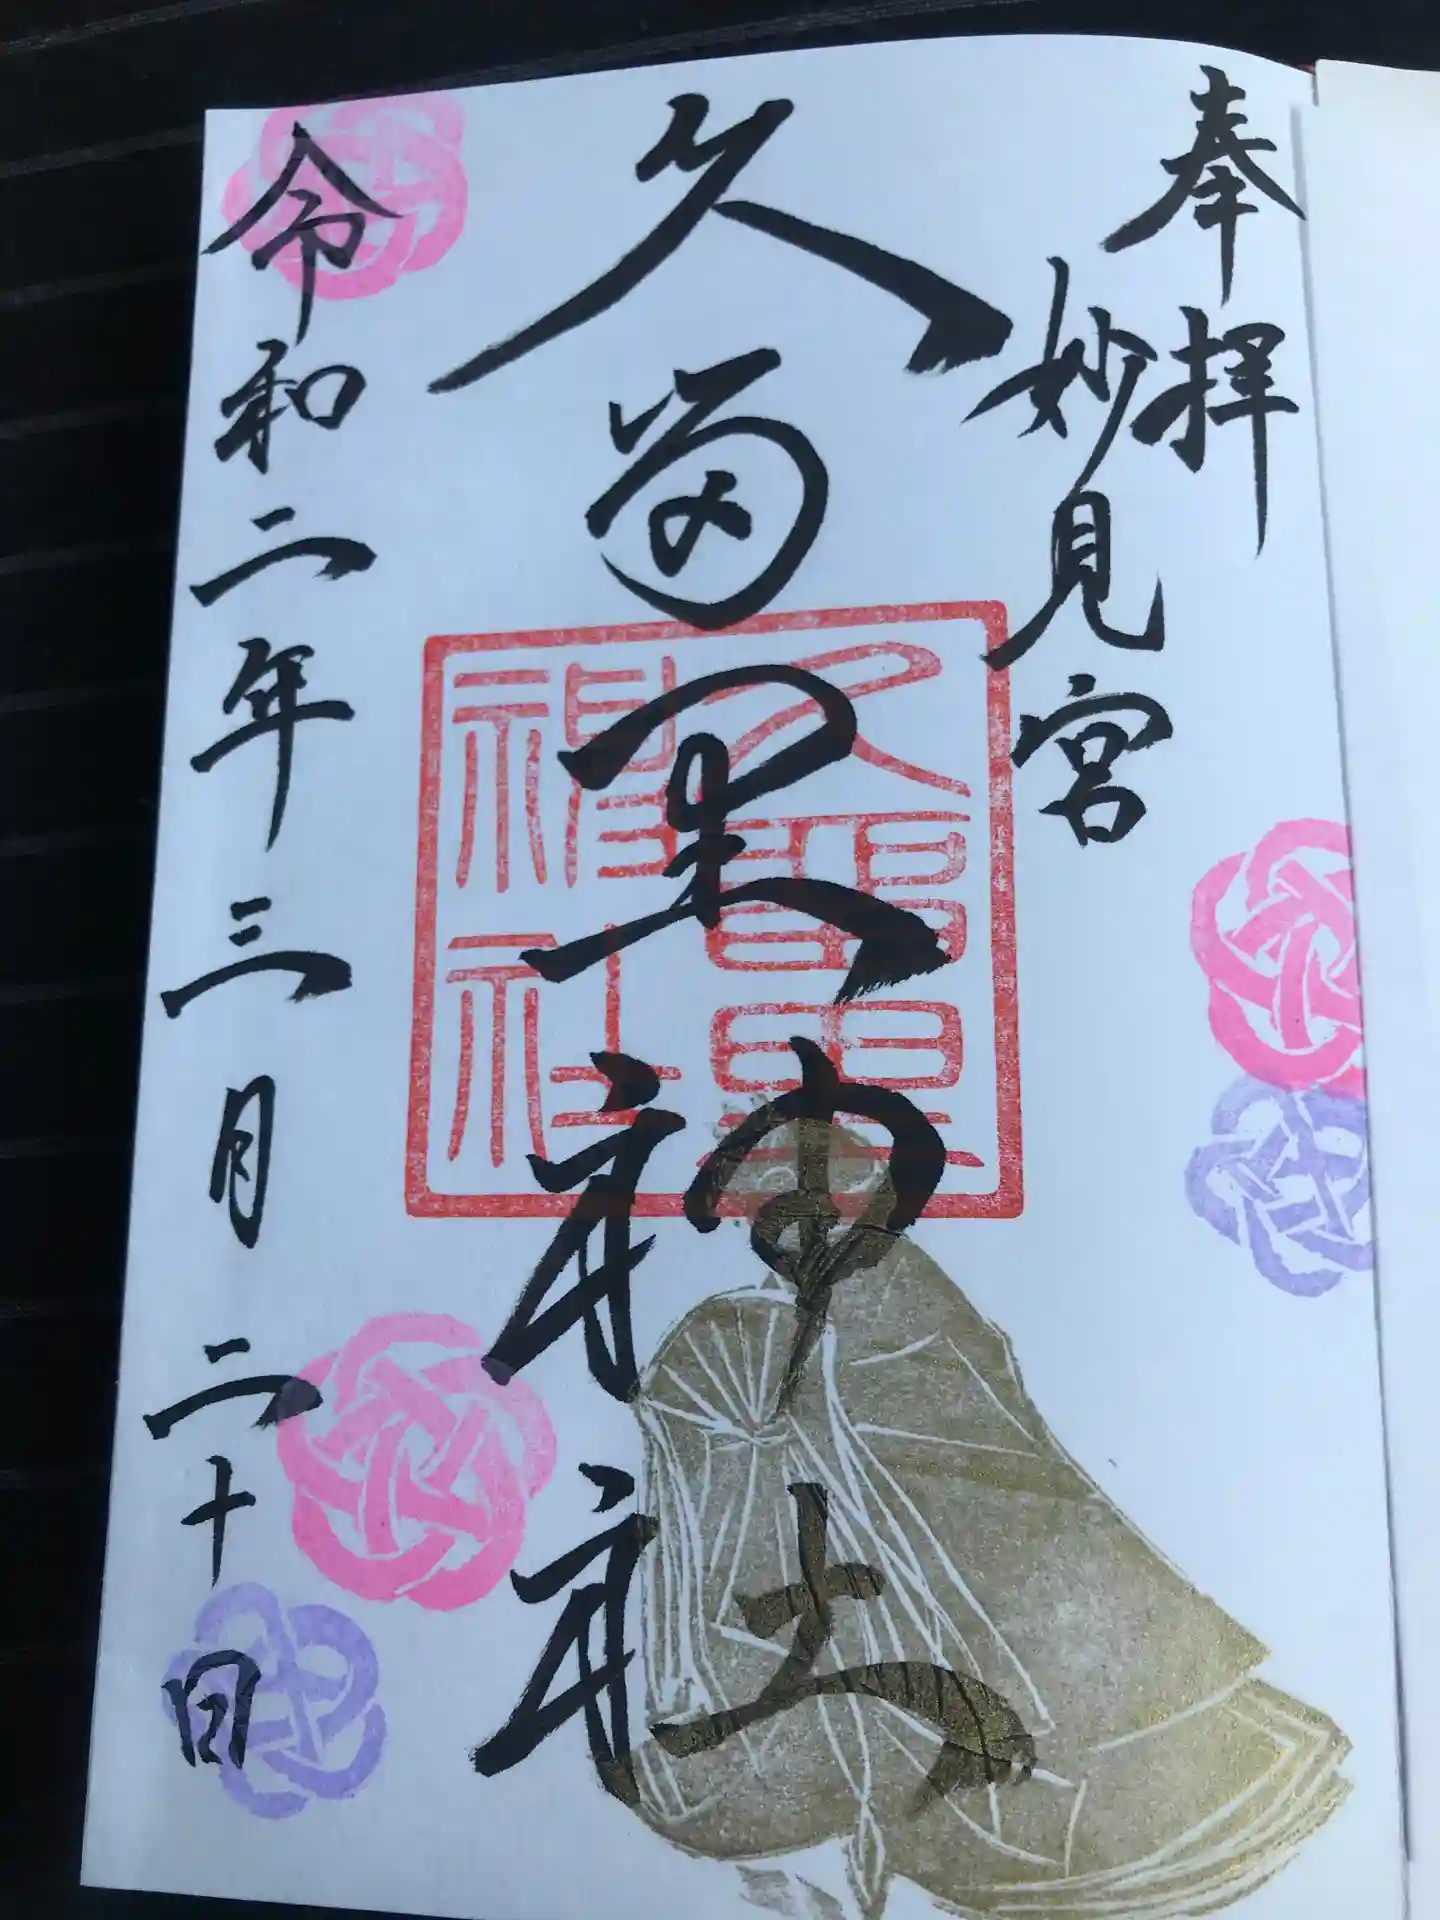 奉拝
妙見宮
久留里神社
久留里
神社
令和二年三月二十日